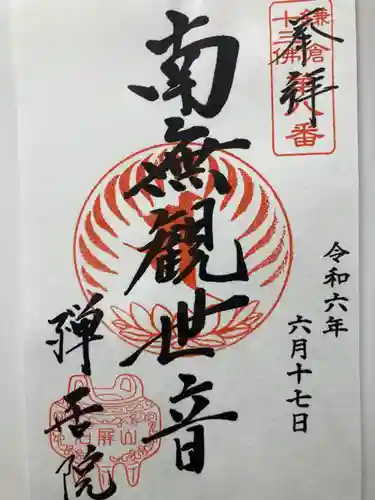 鎌倉
十三佛
第八番
奉拝
南無觀世音
令和六年
六月十七日
禪居院